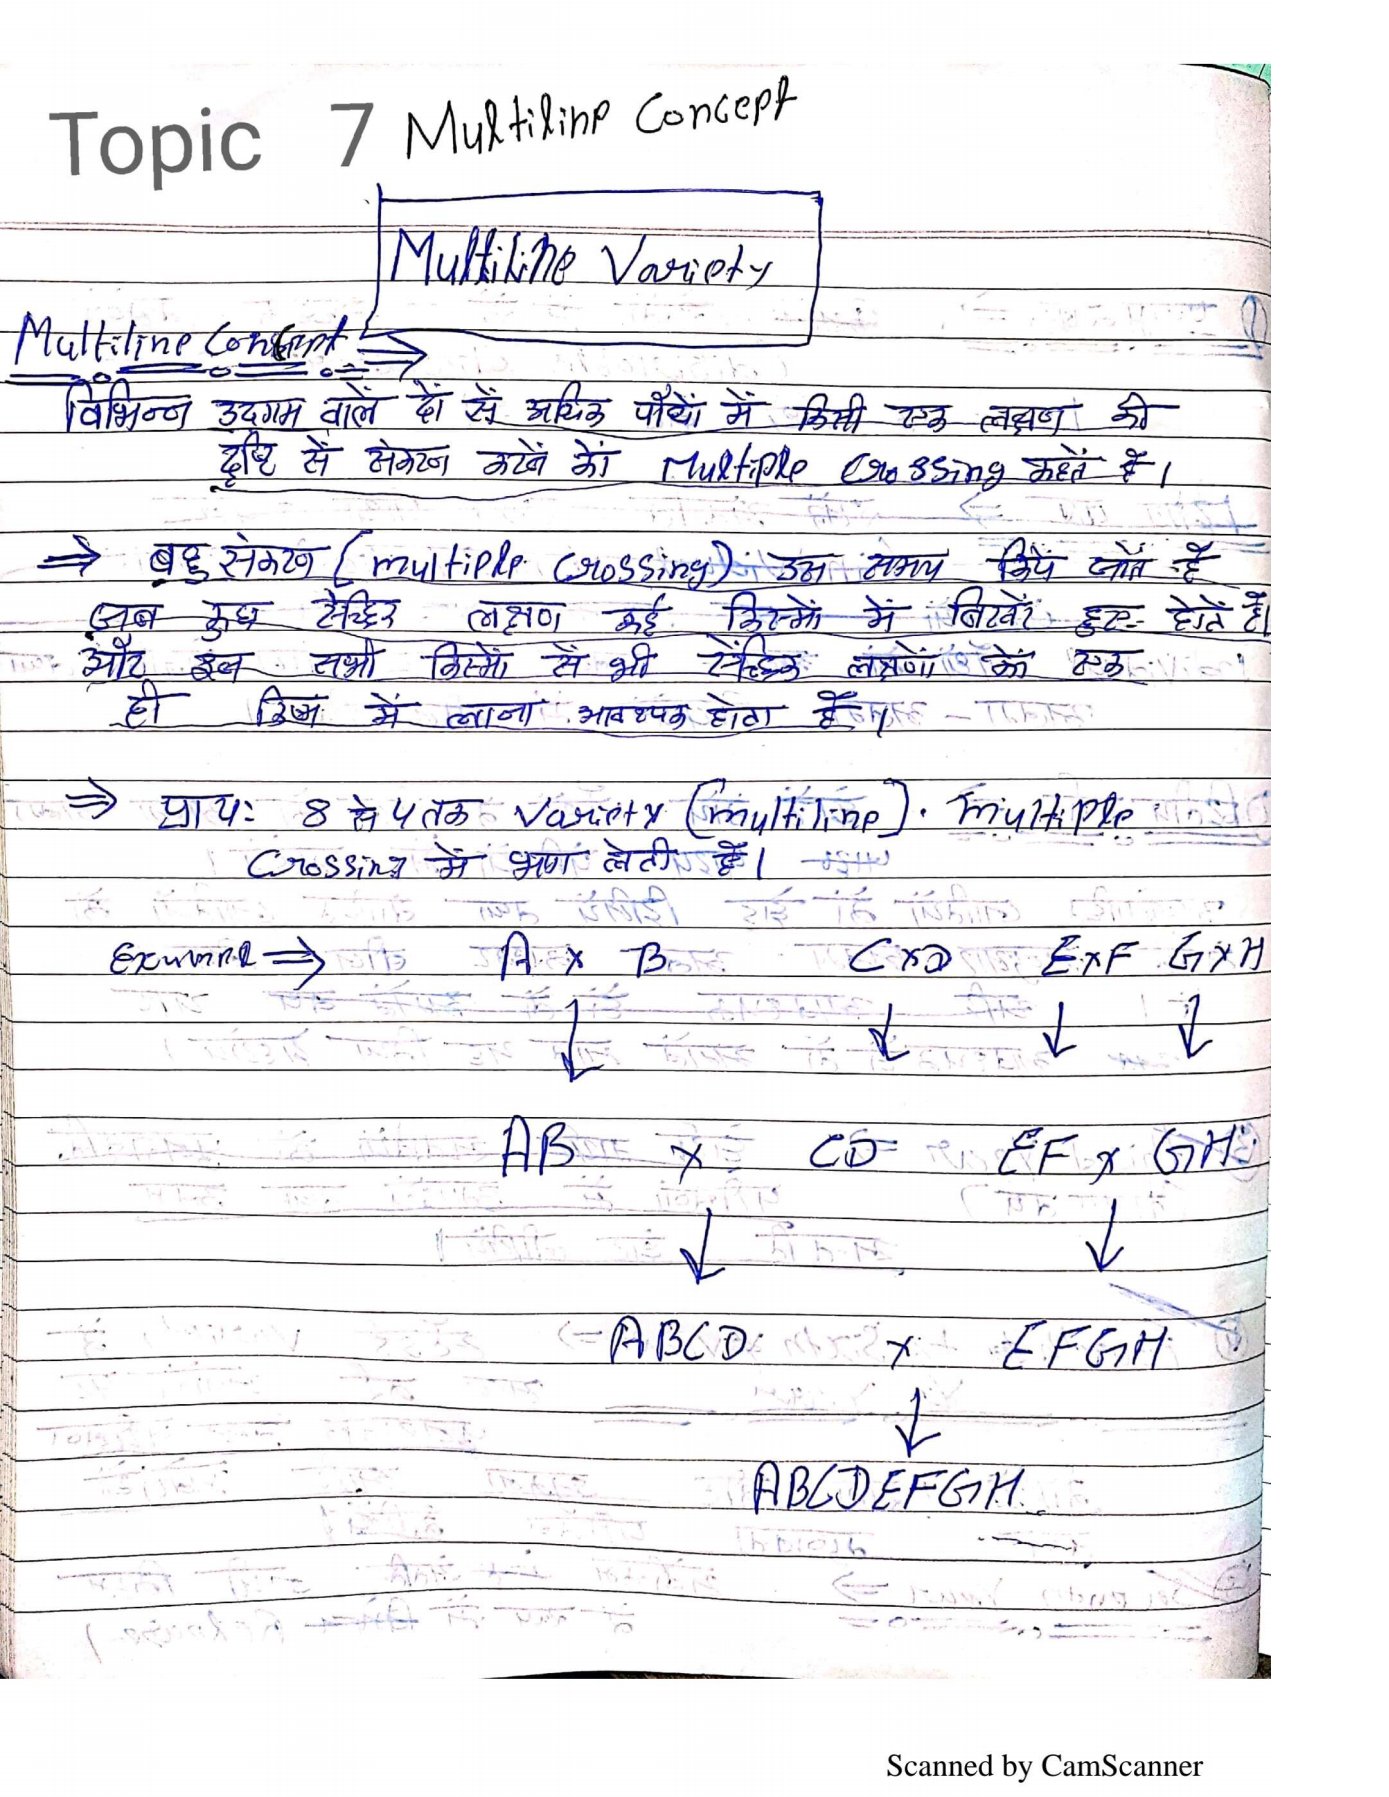 Topic 7 Multiline Concept
Multiline Variety
Multiline Concept ⇒
विभिन्न उदगम वालें दों सें अधिक पौधों में किसी एक लक्षण की
दृष्टि सें संकरण करनें कों Multiple Crossing कहतें हैं।
⇒ बहु संकरण (multiple Crossing) उस समय कियें जातें हैं
जब कुछ ऐच्छिक लक्षण कई किस्मों में बिखरें हुए होतें हैं।
और इन सभी किस्मों सें भी ऐच्छिक लक्षणों कों एक
ही किस्म में लाना आवश्यक होता हैं।
⇒ प्रायः 8 से 4 तक Variety (multiline). multiple
Crossing में भाग लेती हैं।
Example ⇒ A x B C x D E x F G x H
AB x CD EF x GH
ABCD x EFGH
ABCDEFGH
Scanned by CamScanner